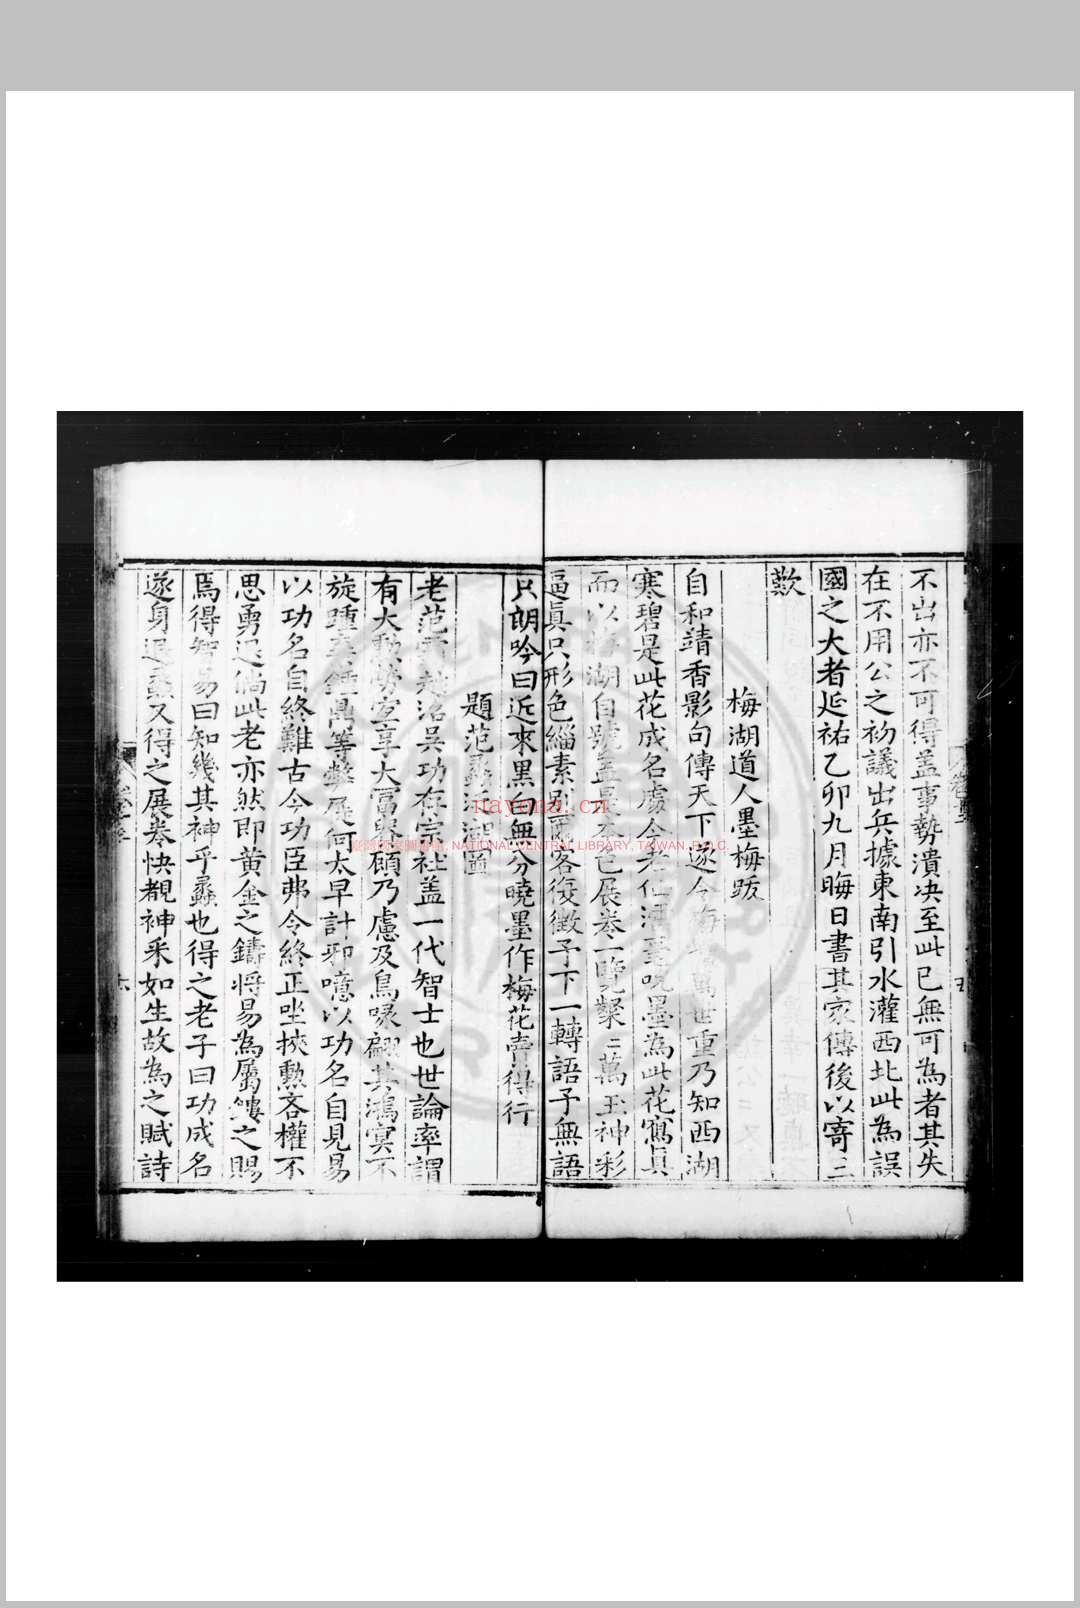 不出亦不可得盖事勢潰决至此已無可為者其失
在不用公之初議出兵據東南引水灌西北此為誤
國之大者延祐乙卯九月晦日書其家傳後以寄三
歎
梅湖道人墨梅跋
自和靖香影句傳天下遂令梅萬世重乃知西湖
寒碧是此花成名處今老仙洒墨為此花寫真
而以梅湖自號盖是本已展卷一覽粲二萬玉神彩
逼眞只形色緇素別爾客復徵予下一轉語予無語
只朗吟曰近來黑白無分曉墨作梅花賣得行
題范蠡湖圖
老范霸越沼吳功存宗社盖一代智士也世論率謂
有大勲勞宜享大富貴顧乃慮及鳥喙翩其鴻冥不
旋踵棄鍾鼎等弊屣何太早計邪噫以功名自見易
以功名自終難古今功臣弗令終正坐挾勲吝權不
思勇退倘此老亦然即黄金之鑄将易為屬鏤之賜
焉得智易曰知幾其神乎蠡也得之老子曰功成名
遂身退蠡又得之展卷快覩神采如生故為之賦詩
nayona.cn
臺灣國家圖書館, NATIONAL CENTRAL LIBRARY, TAIWAN, R.O.C.